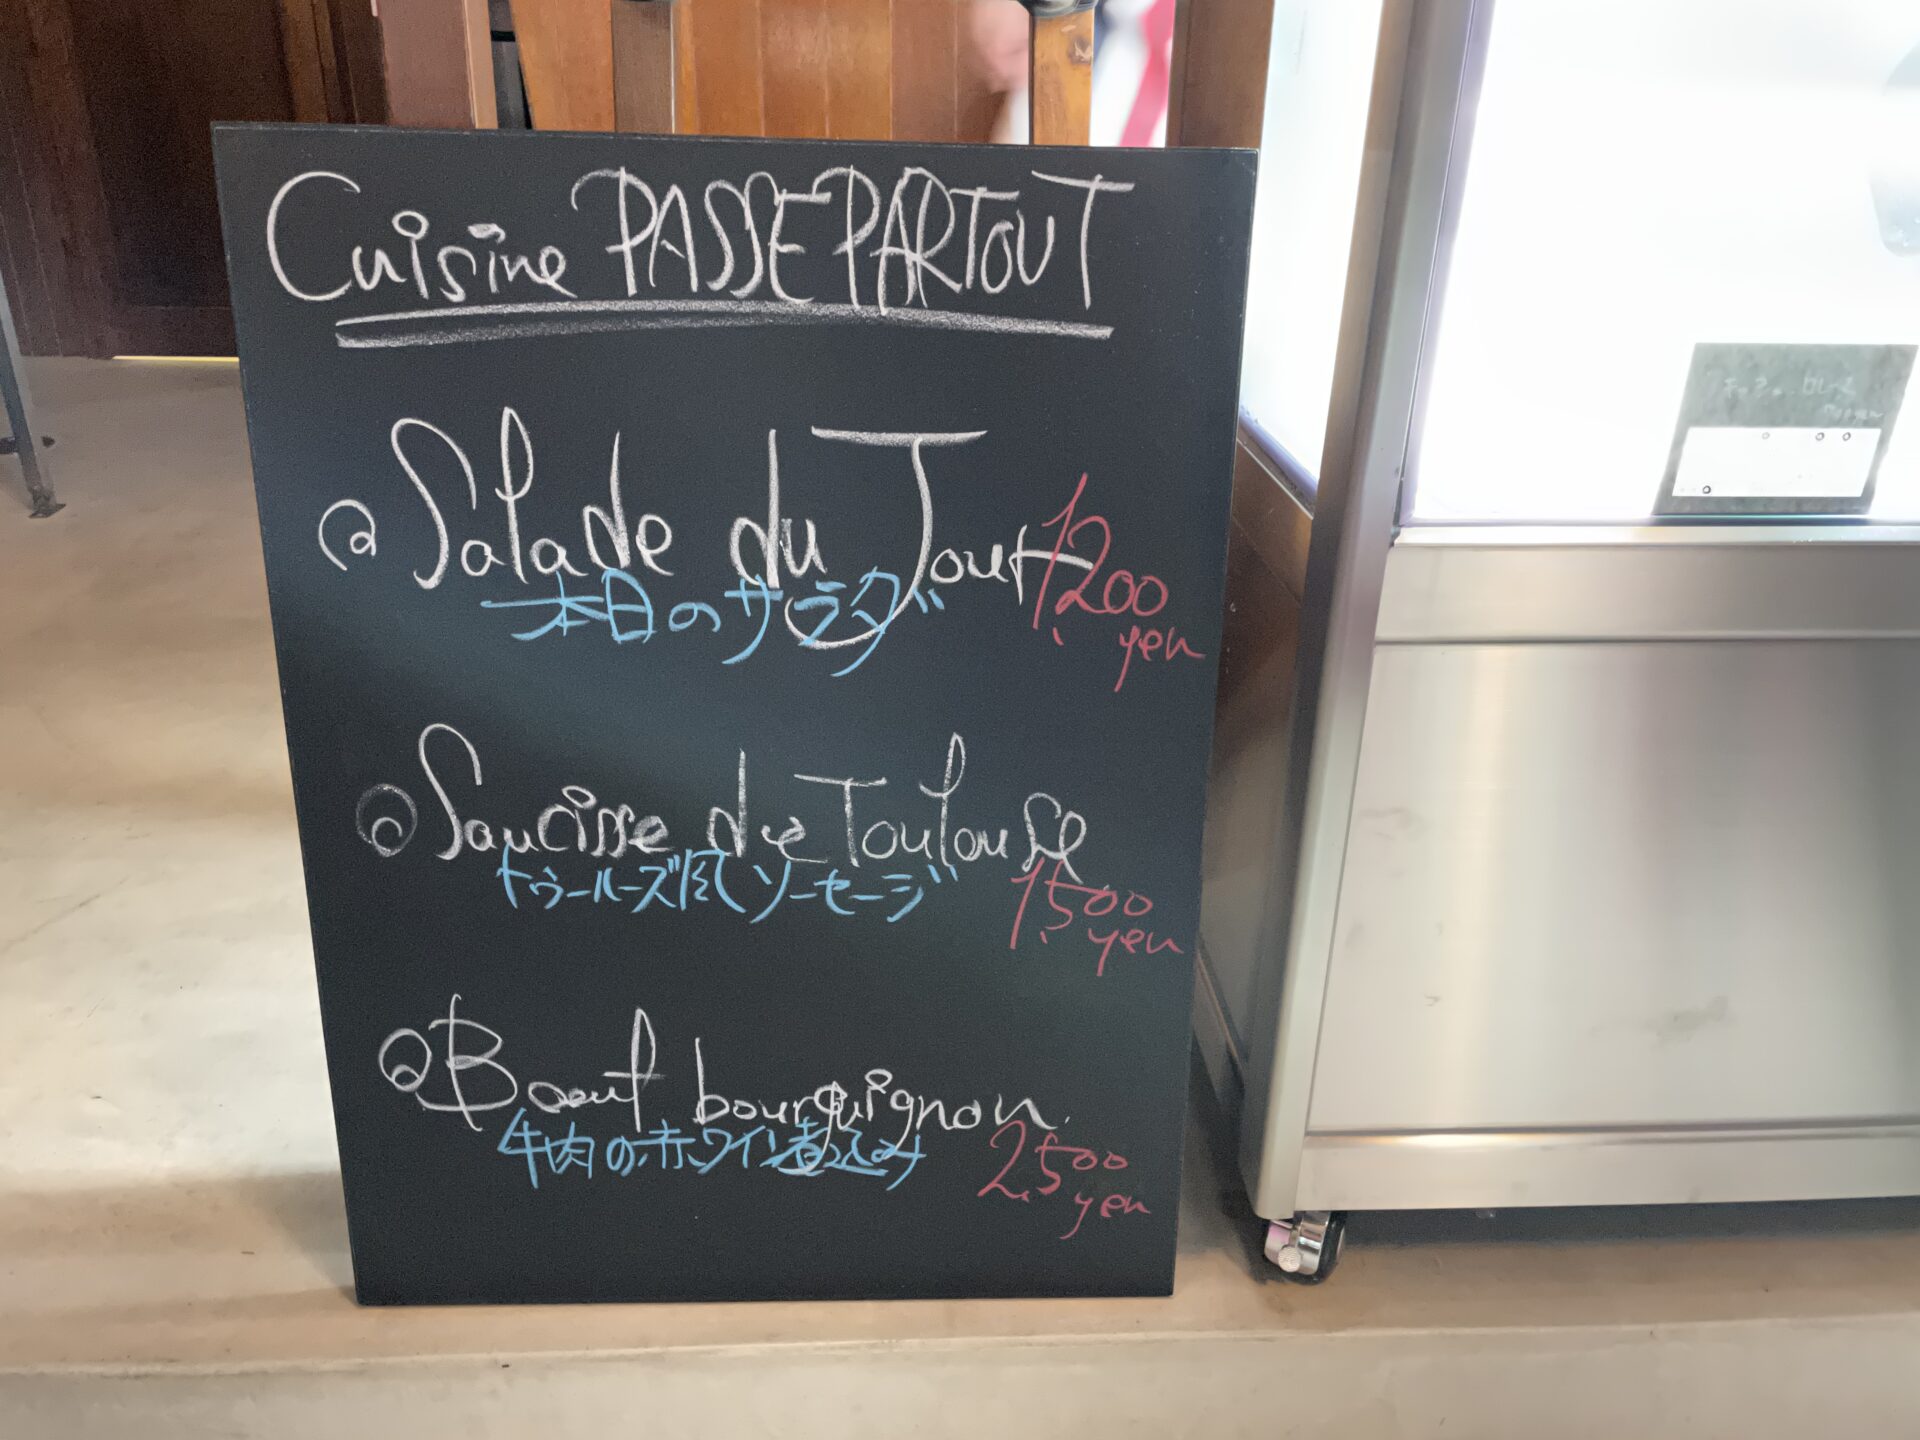 Cuisine PASSE PARTOUT
Salade du Jour
本日のサラダ
1,200
yen
Saucisse de Toulouse
トゥールーズ風ソーセージ
1,500
yen
Boeuf bourguignon.
牛肉の赤ワイン煮込み
2,500
yen